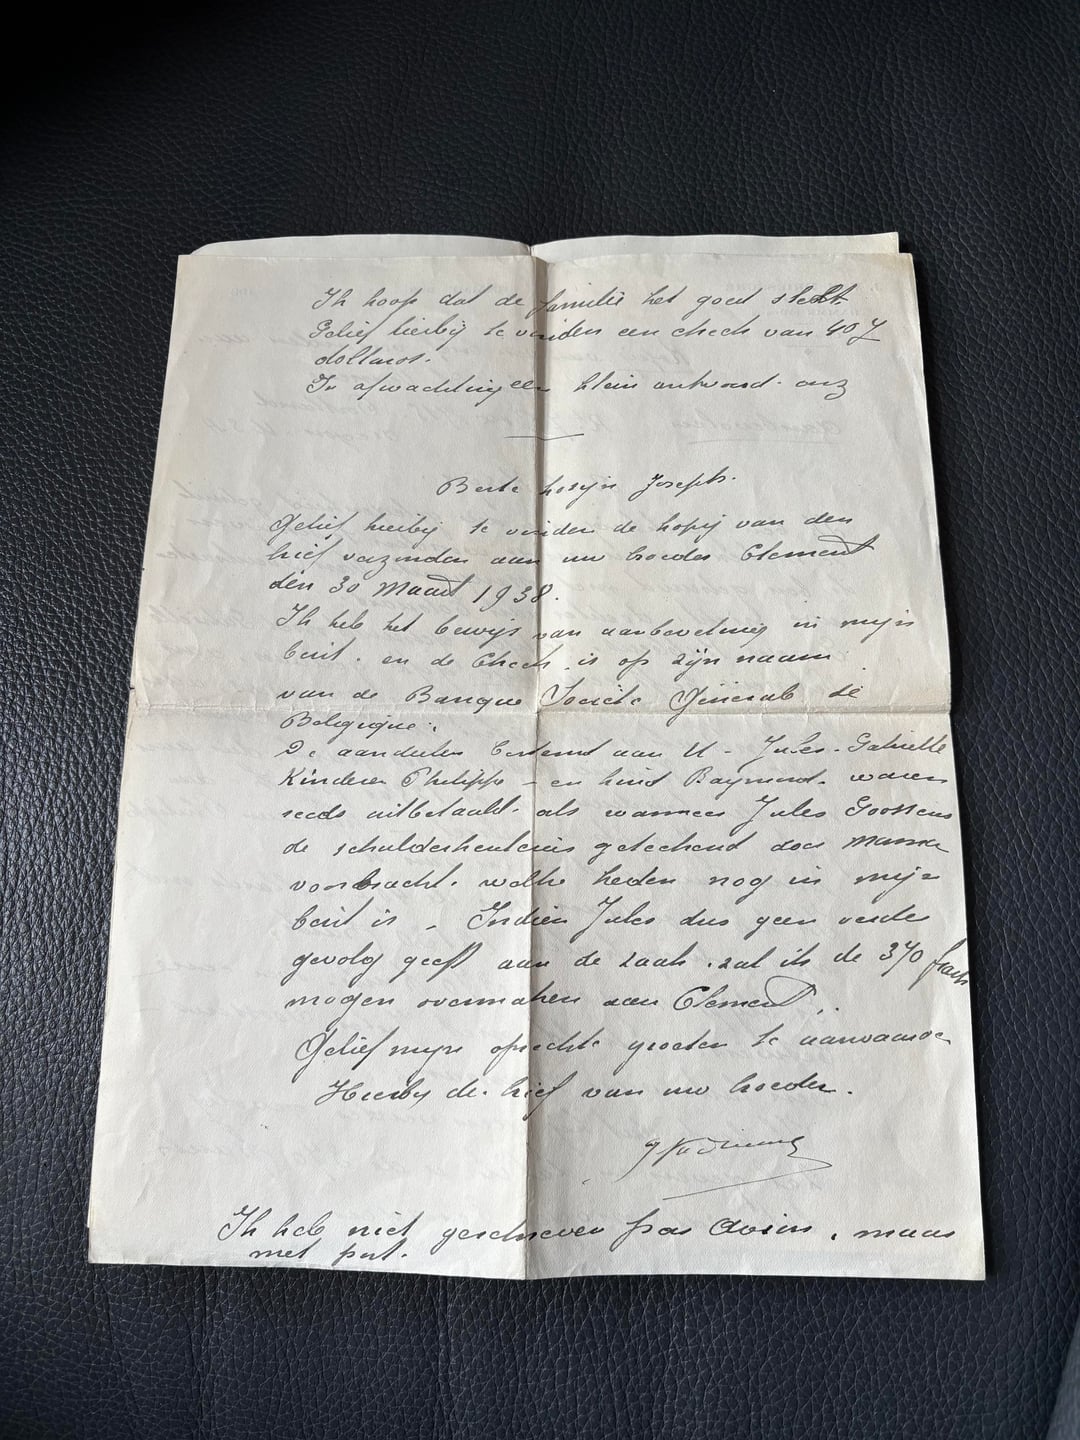 Ik hoop dat de familie het goed stelt
Gelief hierbij te vinden een check van 407
dollars.
In afwachting een klein antwoord. onz
Beste kozijn Joseph.
Gelief hierbij te vinden de kopij van den
brief verzonden aan uw broeder Clement
den 30 Maart 1938.
Ik heb het bewijs van aanbeveling in mijn
bezit. en de Check is op zijn naam
van de Banque Société Générale de
Belgique.
De aandeelen bestemd aan U - Jules - Gabrielle
Kinderen Philippe - en kind Raymond. waren
reeds uitbetaald. als wanneer Jules Goossens
de schulderkentenis geteekend door Mama
voorbracht. welke heden nog in mijn
bezit is. Indien Jules dus geen verder
gevolg geeft aan de zaak. zal ik de 370 frank
mogen overmaken aan Clement.
Gelief mijn oprechte groeten te aanvaarden
Hierbij de brief van uw broeder.
Ik heb niet geschreven par Avion, maar
met post.